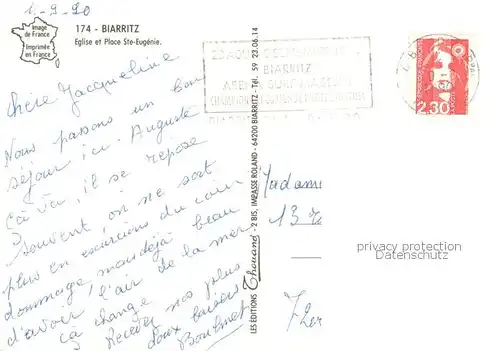 1.9.90
Image
de France
Imprimée
en France
174 - BIARRITZ
Eglise et Place Ste-Eugénie.
Chère Jacqueline
Nous passons un bon
séjour ici. Auguste
ça va, il se repose
souvent, on ne sort
plus en excursions du coin
dommage mais déjà beau
d'avoir l'air de la mer
ça change
Recevez nos plus
doux baisers
LES ÉDITIONS Thouand - 2 BIS, IMPASSE ROLAND - 64200 BIARRITZ - Tél. 59 23.06.14
BIARRITZ
2.30
Madam
13 r
privacy protection
Datenschutz